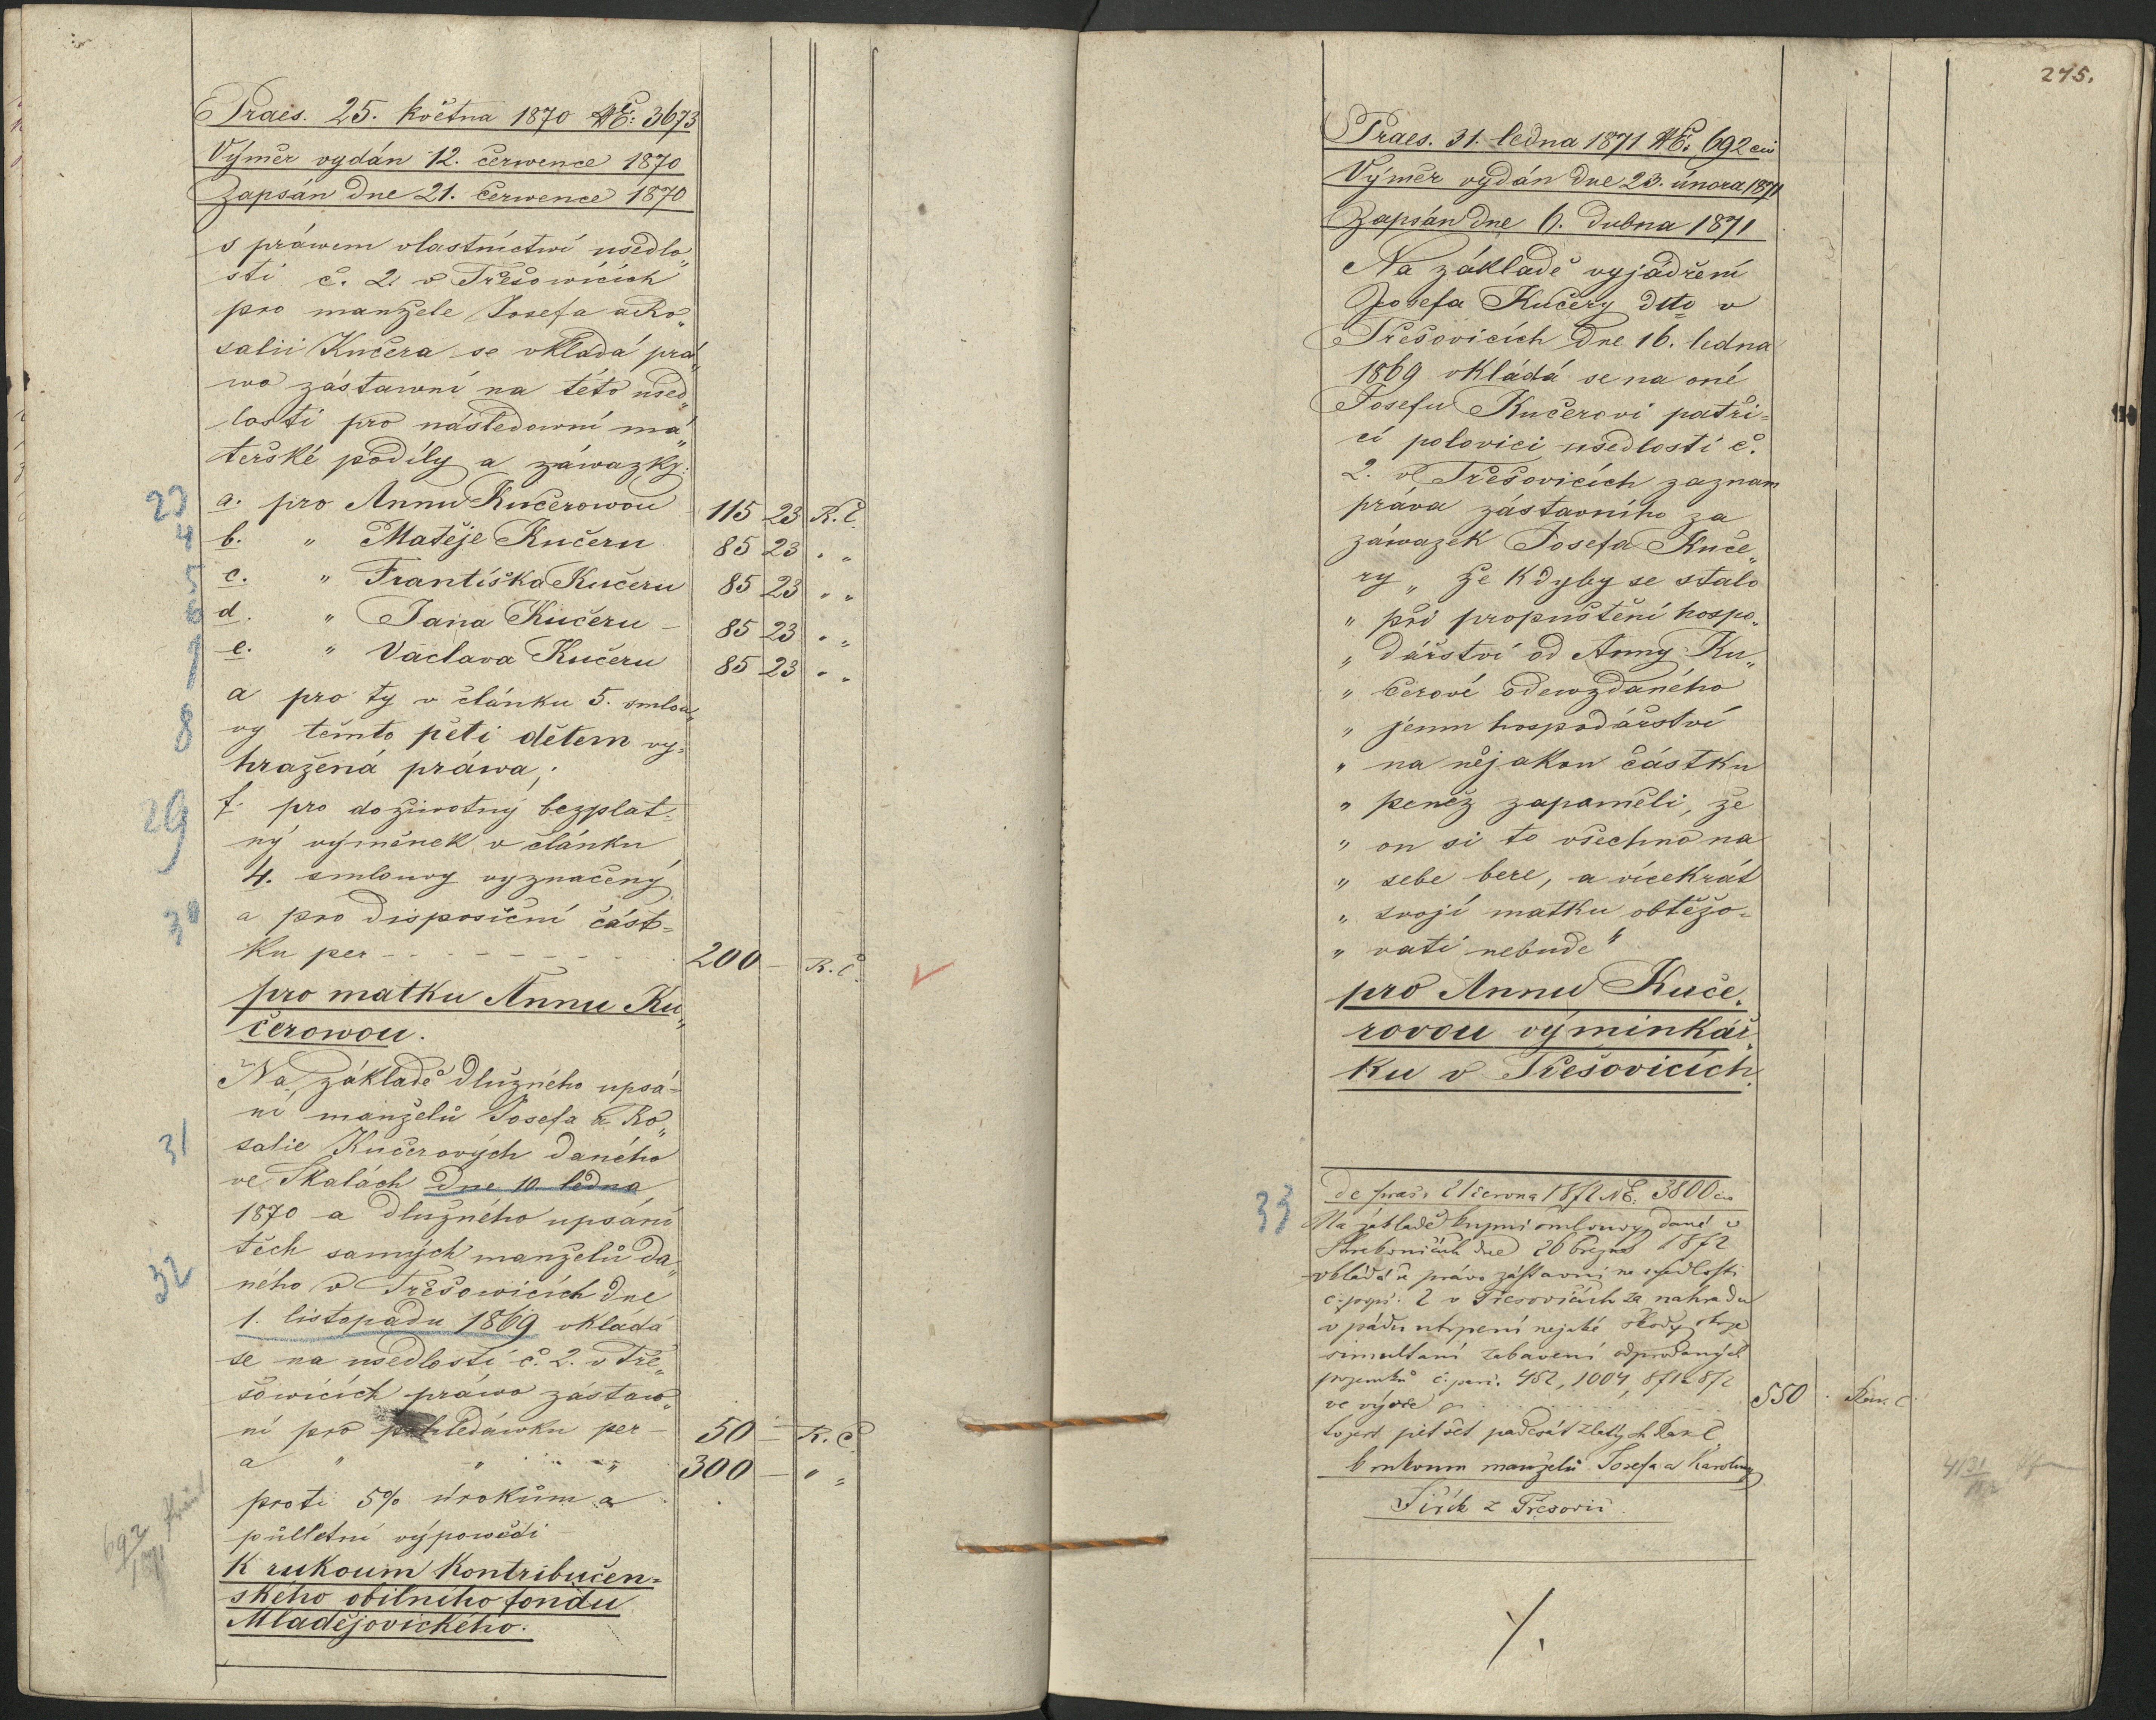 Praes. 25. května 1870 NE: 3673
Výměr vydán 12. července 1870
Zapsán dne 21. července 1870
s práwem vlastnictwí usedlo„
sti č. 2. v Třešowicích
pro manžele Josefa a Ro„
salii Kučera se vkládá prá„
wo zástawní na této used„
losti pro následowní má„
teřské podíly a záwazky:
23 a. pro Annu Kučerowou 115 23 R.Č.
4 b. „ Matěje Kučeru 85 23 „ „
5 c. „ Františka Kučeru 85 23 „ „
6 d. „ Jana Kučeru – 85 23 „ „
7 e. „ Vaclava Kučeru 85 23 „ „
a pro ty v článku 5. smlou„
8 vy těmto pěti dětem vy=
hražená práwa;
29 f. pro doživotný bezplat=
ný výměnek v článku
4. smlouvy vyznačený
30 a pro disposiční část=
ku per - - - - - - - 200 – R.Č.
pro matku Annu Ku„
čerowou.
Na základě dlužného upsá=
ní manželů Josefa a Ro„
31 salie Kučerových daného
ve Skalách dne 10. ledna
1870 a dlužného upsání
těch samých manželů da„
32 ného v Třešowicích dne
1. listopadu 1869 vkládá
se na usedlosti č. 2. v Tře„
šowicích práwo zástaw„
ní pro pohledáwku per – 50 – R.Č.
a „ „ „ 300 – „ „
proti 5% úrokům a
půlletní výpowědi
692/1871
K rukoum Kontribučen=
ského obilního fondu
Mladějovického.
275.
Praes. 31. ledna 1871 NE. 692 civ
Výměr vydán dne 23. února 1871
Zapsán dne 6. dubna 1871
Na základě vyjádření
Josefa Kučery dtto v
Třešovicích dne 16. ledna
1869 vkládá se na oné
Josefu Kučerovi patří=
cí polovici usedlosti č.
2. v Třešovicích zaznam
práva zástavního za
záwazek Josefa Kuče„
ry „ že kdyby se stalo
„ při propuštění hospo„
„ dářství od Anny Ku„
„ čerové odewzdaného
„ jemu hospodářství
„ na nějakou částku
„ peněz zapoměli, že
„ on si to všechno na
„ sebe bere, a vícekrát
„ svojí matku obtěžo=
„ vati nebude“
pro Annu Kuče„
rovou výminkář„
ku v Třešovicích.
33 de praes. 21 června 1872 NE. 3800 civ
Na základě kupní smlouvy dané v
Strakonicích dne 26 března 1872
vkládá se právo zástavní na usedlosti
č. pops. 2 v Třešovicích za nahradu
v pádu utrpení nejaké škody skrze
simultaní zabavení odprodaných
pozemků č. parc. 452, 1004, 871 a 872
ve výšce pr . . . . . . 550 . Rak. č.
to jest pět set padesát zlatých Rak č
k rukoum manželů Josefa a Karoliny
Šišek z Třešovic